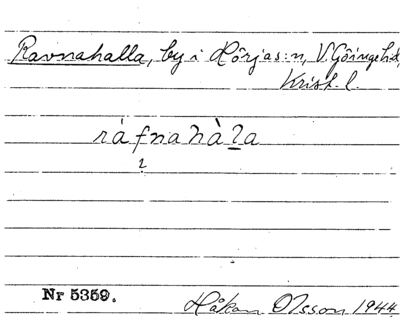 Ravnahalla, by i Hörjas:n, V. Göingehd,
Krist. l.
ráfnahàla
2
Nr 5359.
Håkan Olsson 1944